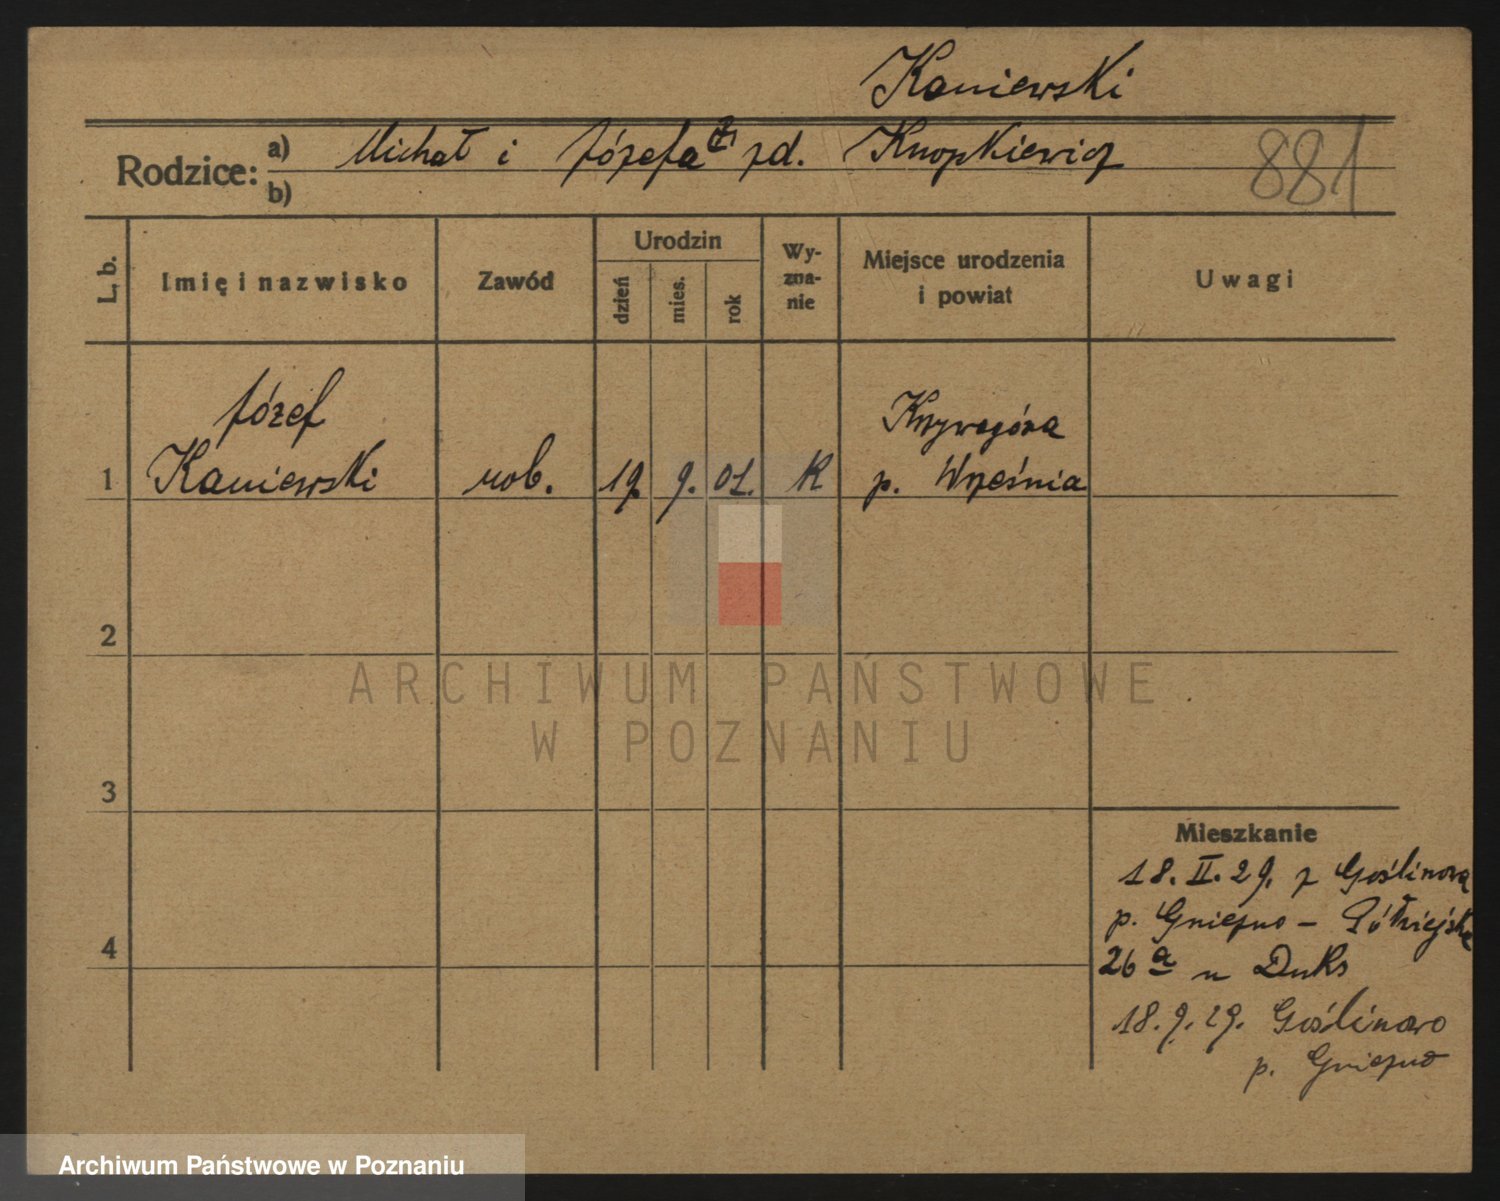 Kaniewski
Rodzice: a) Michał i Józefa zd. Knopkiewicz
b)
881
L. b.
Imię i nazwisko
Zawód
Urodzin
dzień
mies.
rok
Wy-
zna-
nie
Miejsce urodzenia
i powiat
Uwagi
Józef
Krzywagóra
1 Kaniewski rob. 19. 9. 01. R p. Września
2
ARCHIWUM PAŃSTWOWE
W POZNANIU
3
Mieszkanie
18. II. 29. z Goślinowa
p. Gniezno –
4
26 a u Duks
18. 9. 29. Goślinowo
p. Gniezno
Archiwum Państwowe w Poznaniu